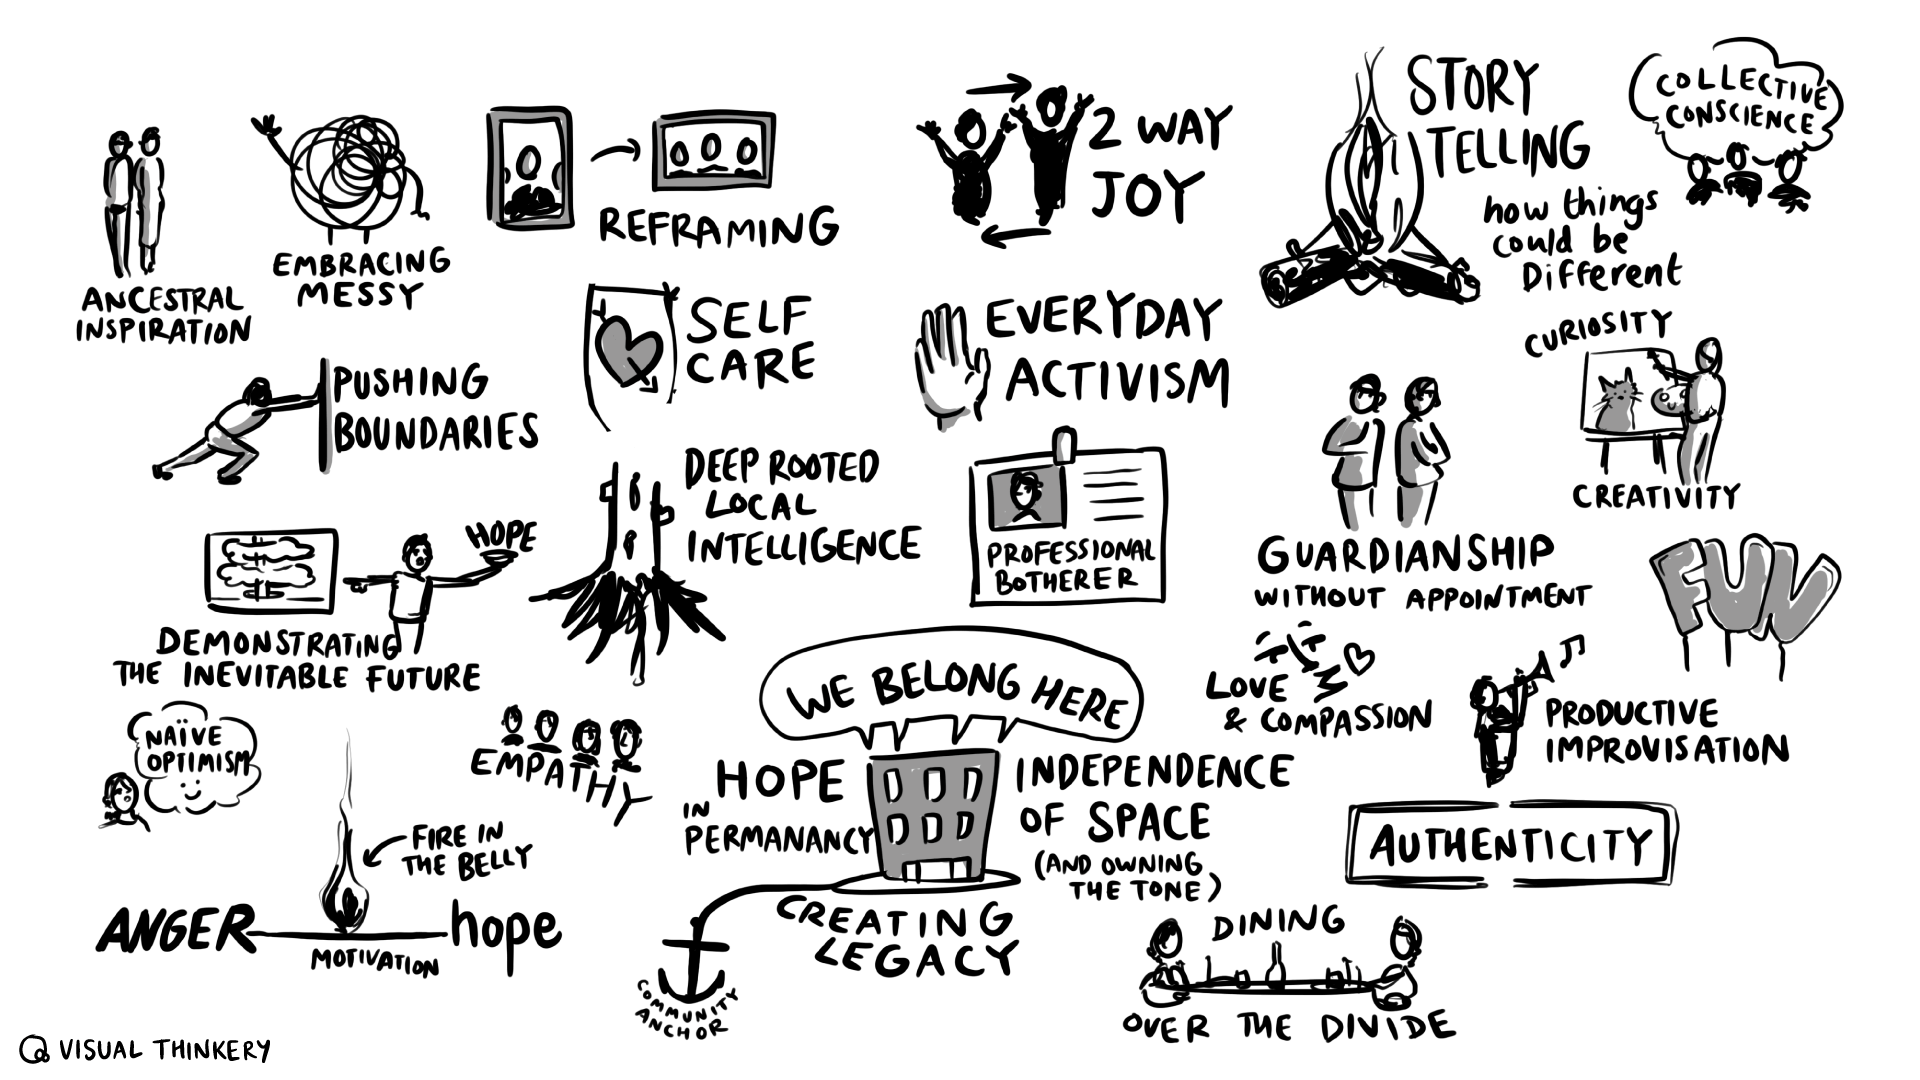 ANCESTRAL
INSPIRATION
EMBRACING
MESSY
REFRAMING
2 WAY
JOY
STORY
TELLING
how things
could be
Different
COLLECTIVE
CONSCIENCE
PUSHING
BOUNDARIES
SELF
CARE
EVERYDAY
ACTIVISM
CURIOSITY
CREATIVITY
HOPE
DEMONSTRATING
THE INEVITABLE FUTURE
DEEP ROOTED
LOCAL
INTELLIGENCE
PROFESSIONAL
BOTHERER
GUARDIANSHIP
WITHOUT APPOINTMENT
FUN
NAÏVE
OPTIMISM
EMPATHY
WE BELONG HERE
LOVE
& COMPASSION
PRODUCTIVE
IMPROVISATION
FIRE IN
THE BELLY
ANGER
hope
MOTIVATION
HOPE
IN
PERMANANCY
INDEPENDENCE
OF SPACE
(AND OWNING
THE TONE)
CREATING
LEGACY
COMMUNITY
ANCHOR
AUTHENTICITY
DINING
OVER THE DIVIDE
VISUAL THINKERY